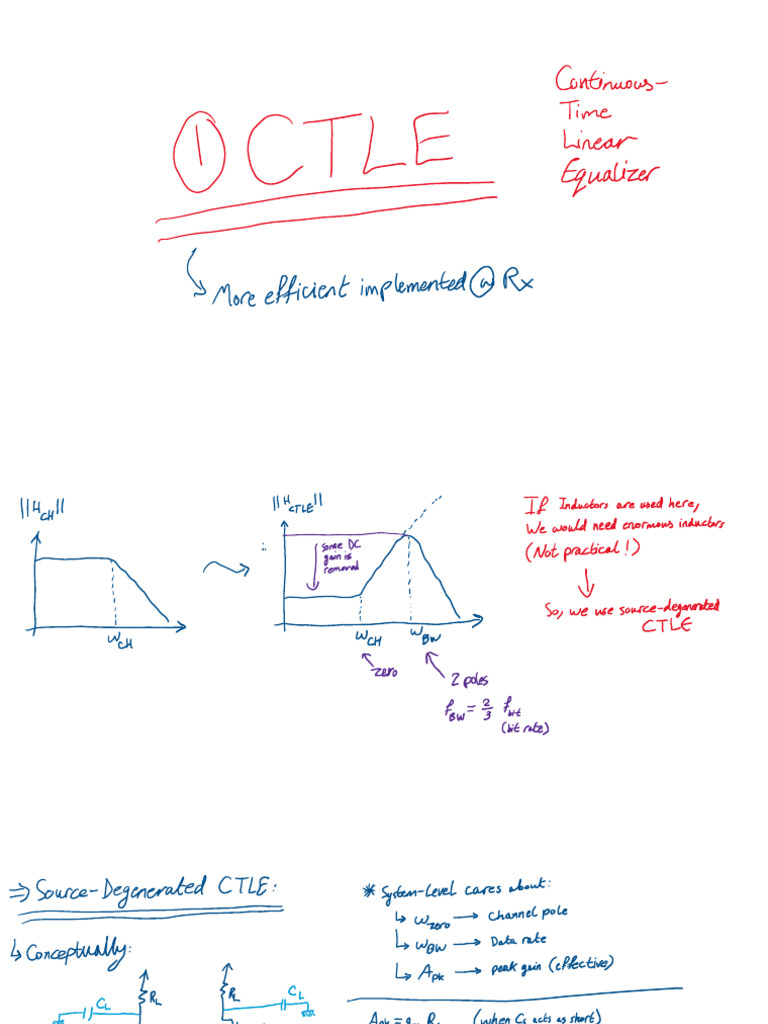 ① CTLE
Continuous-
Time
Linear
Equalizer
↳ More efficient implemented @ Rx
||H_CH||
ω_CH
||H_CTLE||
Some DC
gain is
removed
ω_CH
ω_BW
zero
2 poles
f_BW = 2/3 f_bit
(bit rate)
If Inductors are used here,
We would need enormous inductors
(Not practical!)
↓
So, we use source-degenerated
CTLE
⇒ Source-Degenerated CTLE:
↳ Conceptually:
C_L
R_L
R_L
C_L
* System-Level cares about:
↳ ω_zero → Channel pole
↳ ω_BW → Data rate
↳ A_pk → peak gain (effective)
(when Cs acts as short)